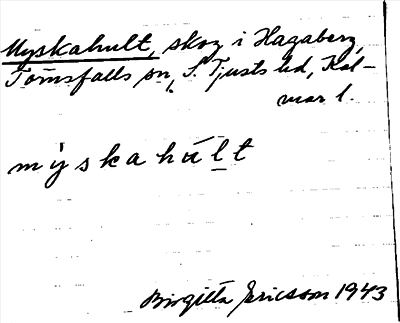 Myskahult, skog i Hagaberg,
Törnsfalls sn, S. Tjusts hd, Kal-
mar l.
mỳskahúl̲t
Birgitta Ericsson 1943